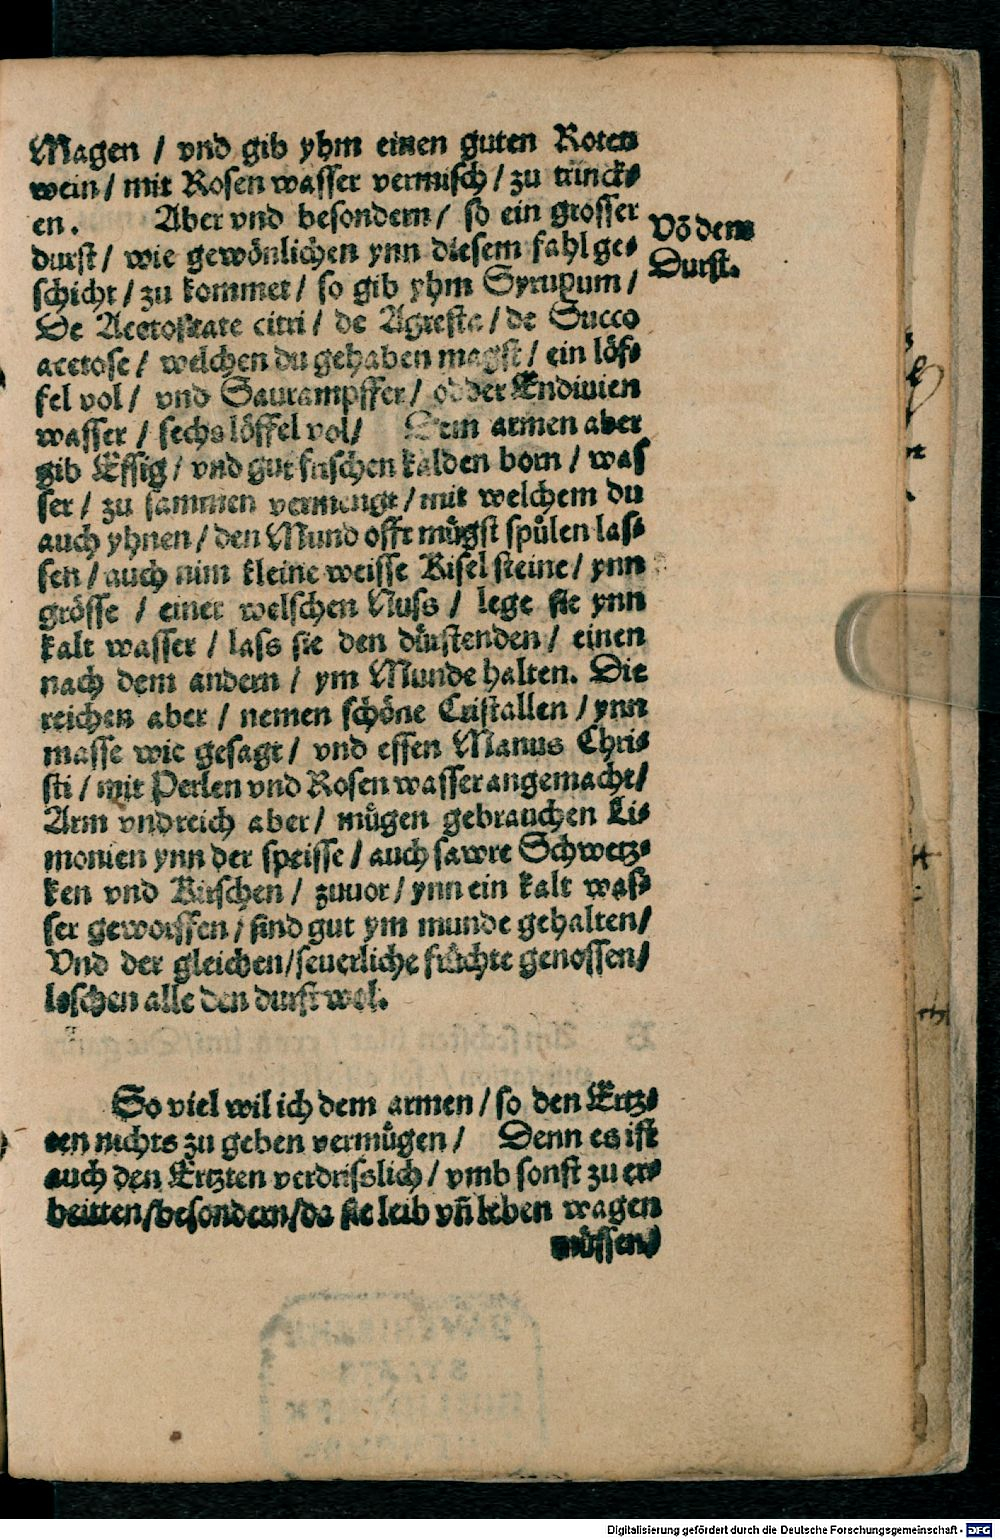 Magen / vnd gib yhm einen guten Roten
wein / mit Rosen wasser vermisch / zu trinck⸗
en. Aber vnd besondern / so ein grosser
durst / wie gewönlichen ynn diesem fahl ge⸗
schicht / zu kommet / so gib yhm Syrupum /
De Acetositate citri / de Agresta / de Succo
acetose / welchen du gehaben magst / ein löf⸗
fel vol / vnd Saurampffer / odder Endiuien
wasser / sechs löffel vol / Dem armen aber
gib Essig / vnd gut frischen kalden born / was
ser / zu sammen vermengt / mit welchem du
auch yhnen / den Mund offt mügst spülen las⸗
sen / auch nim kleine weisse Kisel steine / ynn
grösse / einer welschen Nuss / lege sie ynn
kalt wasser / lass sie den dürstenden / einen
nach dem andern / ym Munde halten. Die
reichen aber / nemen schöne Cristallen / ynn
masse wie gesagt / vnd essen Manus Chri⸗
sti / mit Perlen vnd Rosen wasser angemacht /
Arm vnd reich aber / mügen gebrauchen Li⸗
monien ynn der speisse / auch sawre Schwetz⸗
ken vnd Kirschen / zuuor / ynn ein kalt was⸗
ser geworffen / sind gut ym munde gehalten /
Vnd der gleichen / seuerliche früchte genossen /
leschen alle den durst wol.
Vō dem
Durst.
So viel wil ich dem armen / so den Ertz⸗
ten nichts zu geben vermügen / Denn es ist
auch den Ertzten verdrisslich / vmb sonst zu er⸗
beitten / besondern / da sie leib vn̄ leben wagen
müssen /
Digitalisierung gefördert durch die Deutsche Forschungsgemeinschaft - DFG